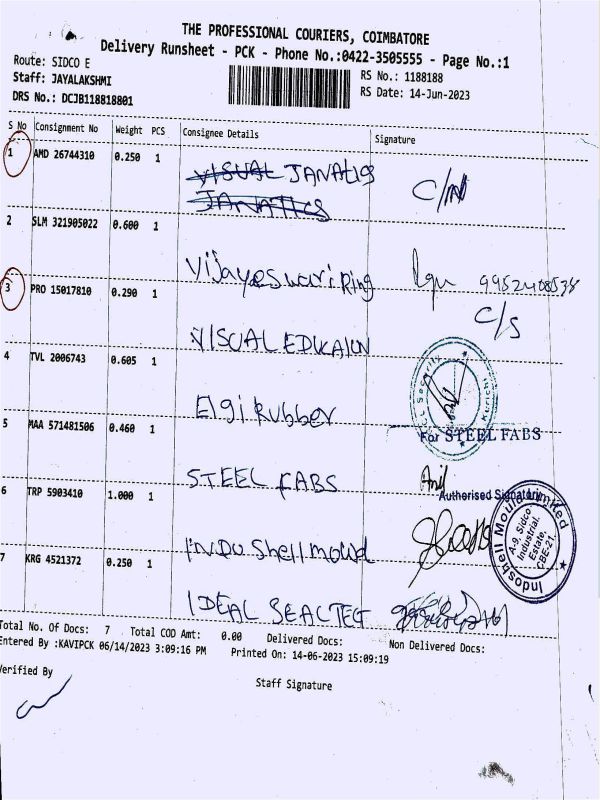 THE PROFESSIONAL COURIERS, COIMBATORE
Delivery Runsheet - PCK - Phone No.:0422-3505555 - Page No.:1
Route: SIDCO E
Staff: JAYALAKSHMI
DRS No.: DCJB118818801
RS No.: 1188188
RS Date: 14-Jun-2023
S No Consignment No Weight PCS Consignee Details Signature
1 AMD 26744310 0.250 1
VISUAL JANATICS
JANATICS
2 SLM 321905022 0.600 1
Vijayeswari Ring
3 PRO 15017810 0.290 1
C/S
VISUAL EDUCAION
4 TVL 2006743 0.605 1
Elgi Rubber
For STEEL FABS
5 MAA 571481506 0.460 1
STEEL FABS
Anil
Authorised Signatory
6 TRP 5903410 1.000 1
Indoshell Mould Limited
A-9, Sidco
Industrial.
Estate,
CBE-21.
Indo Shell mould
7 KRG 4521372 0.250 1
IDEAL SEALTEG
Total No. Of Docs: 7 Total COD Amt: 0.00 Delivered Docs: Non Delivered Docs:
Entered By :KAVIPCK 06/14/2023 3:09:16 PM Printed On: 14-06-2023 15:09:19
Verified By
Staff Signature